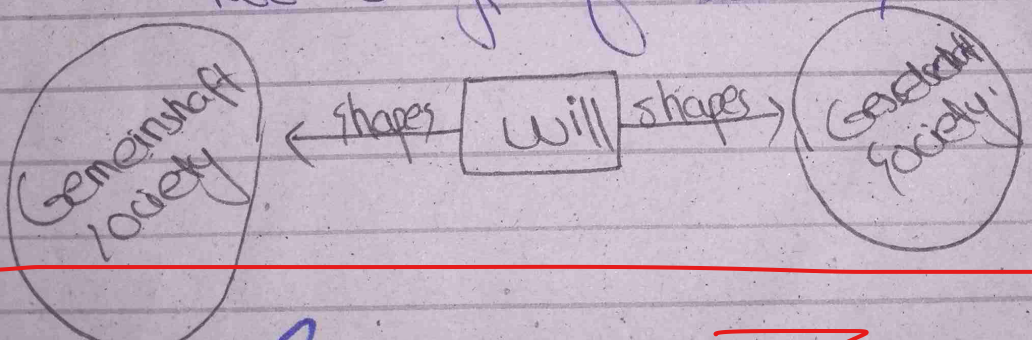 Gemeinshaft
society
shapes
will
shapes
Geselschaft
Society.